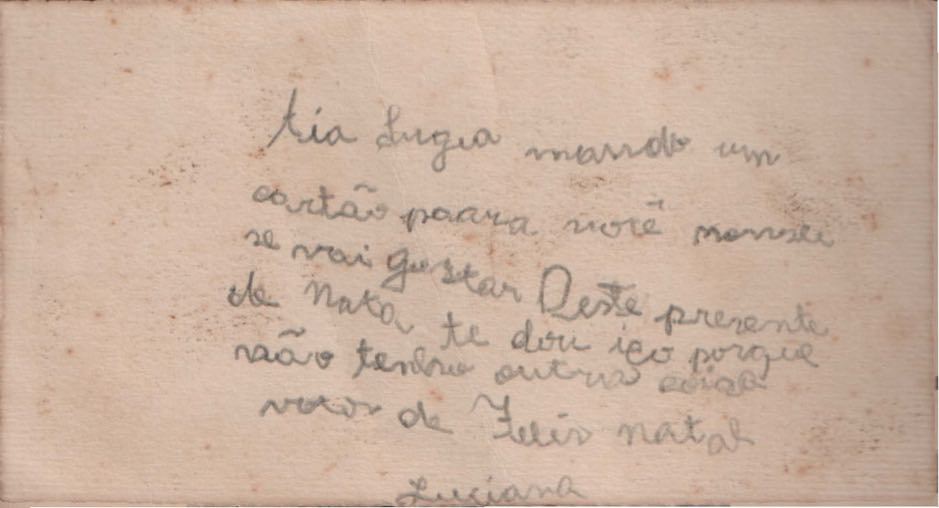 tia Lugia mando um
cartão paara você nonsei
se vai gostar Deste presente
de Nata te dou iço porque
não tenho outra coisa
votos de Feliz natal
Luciana